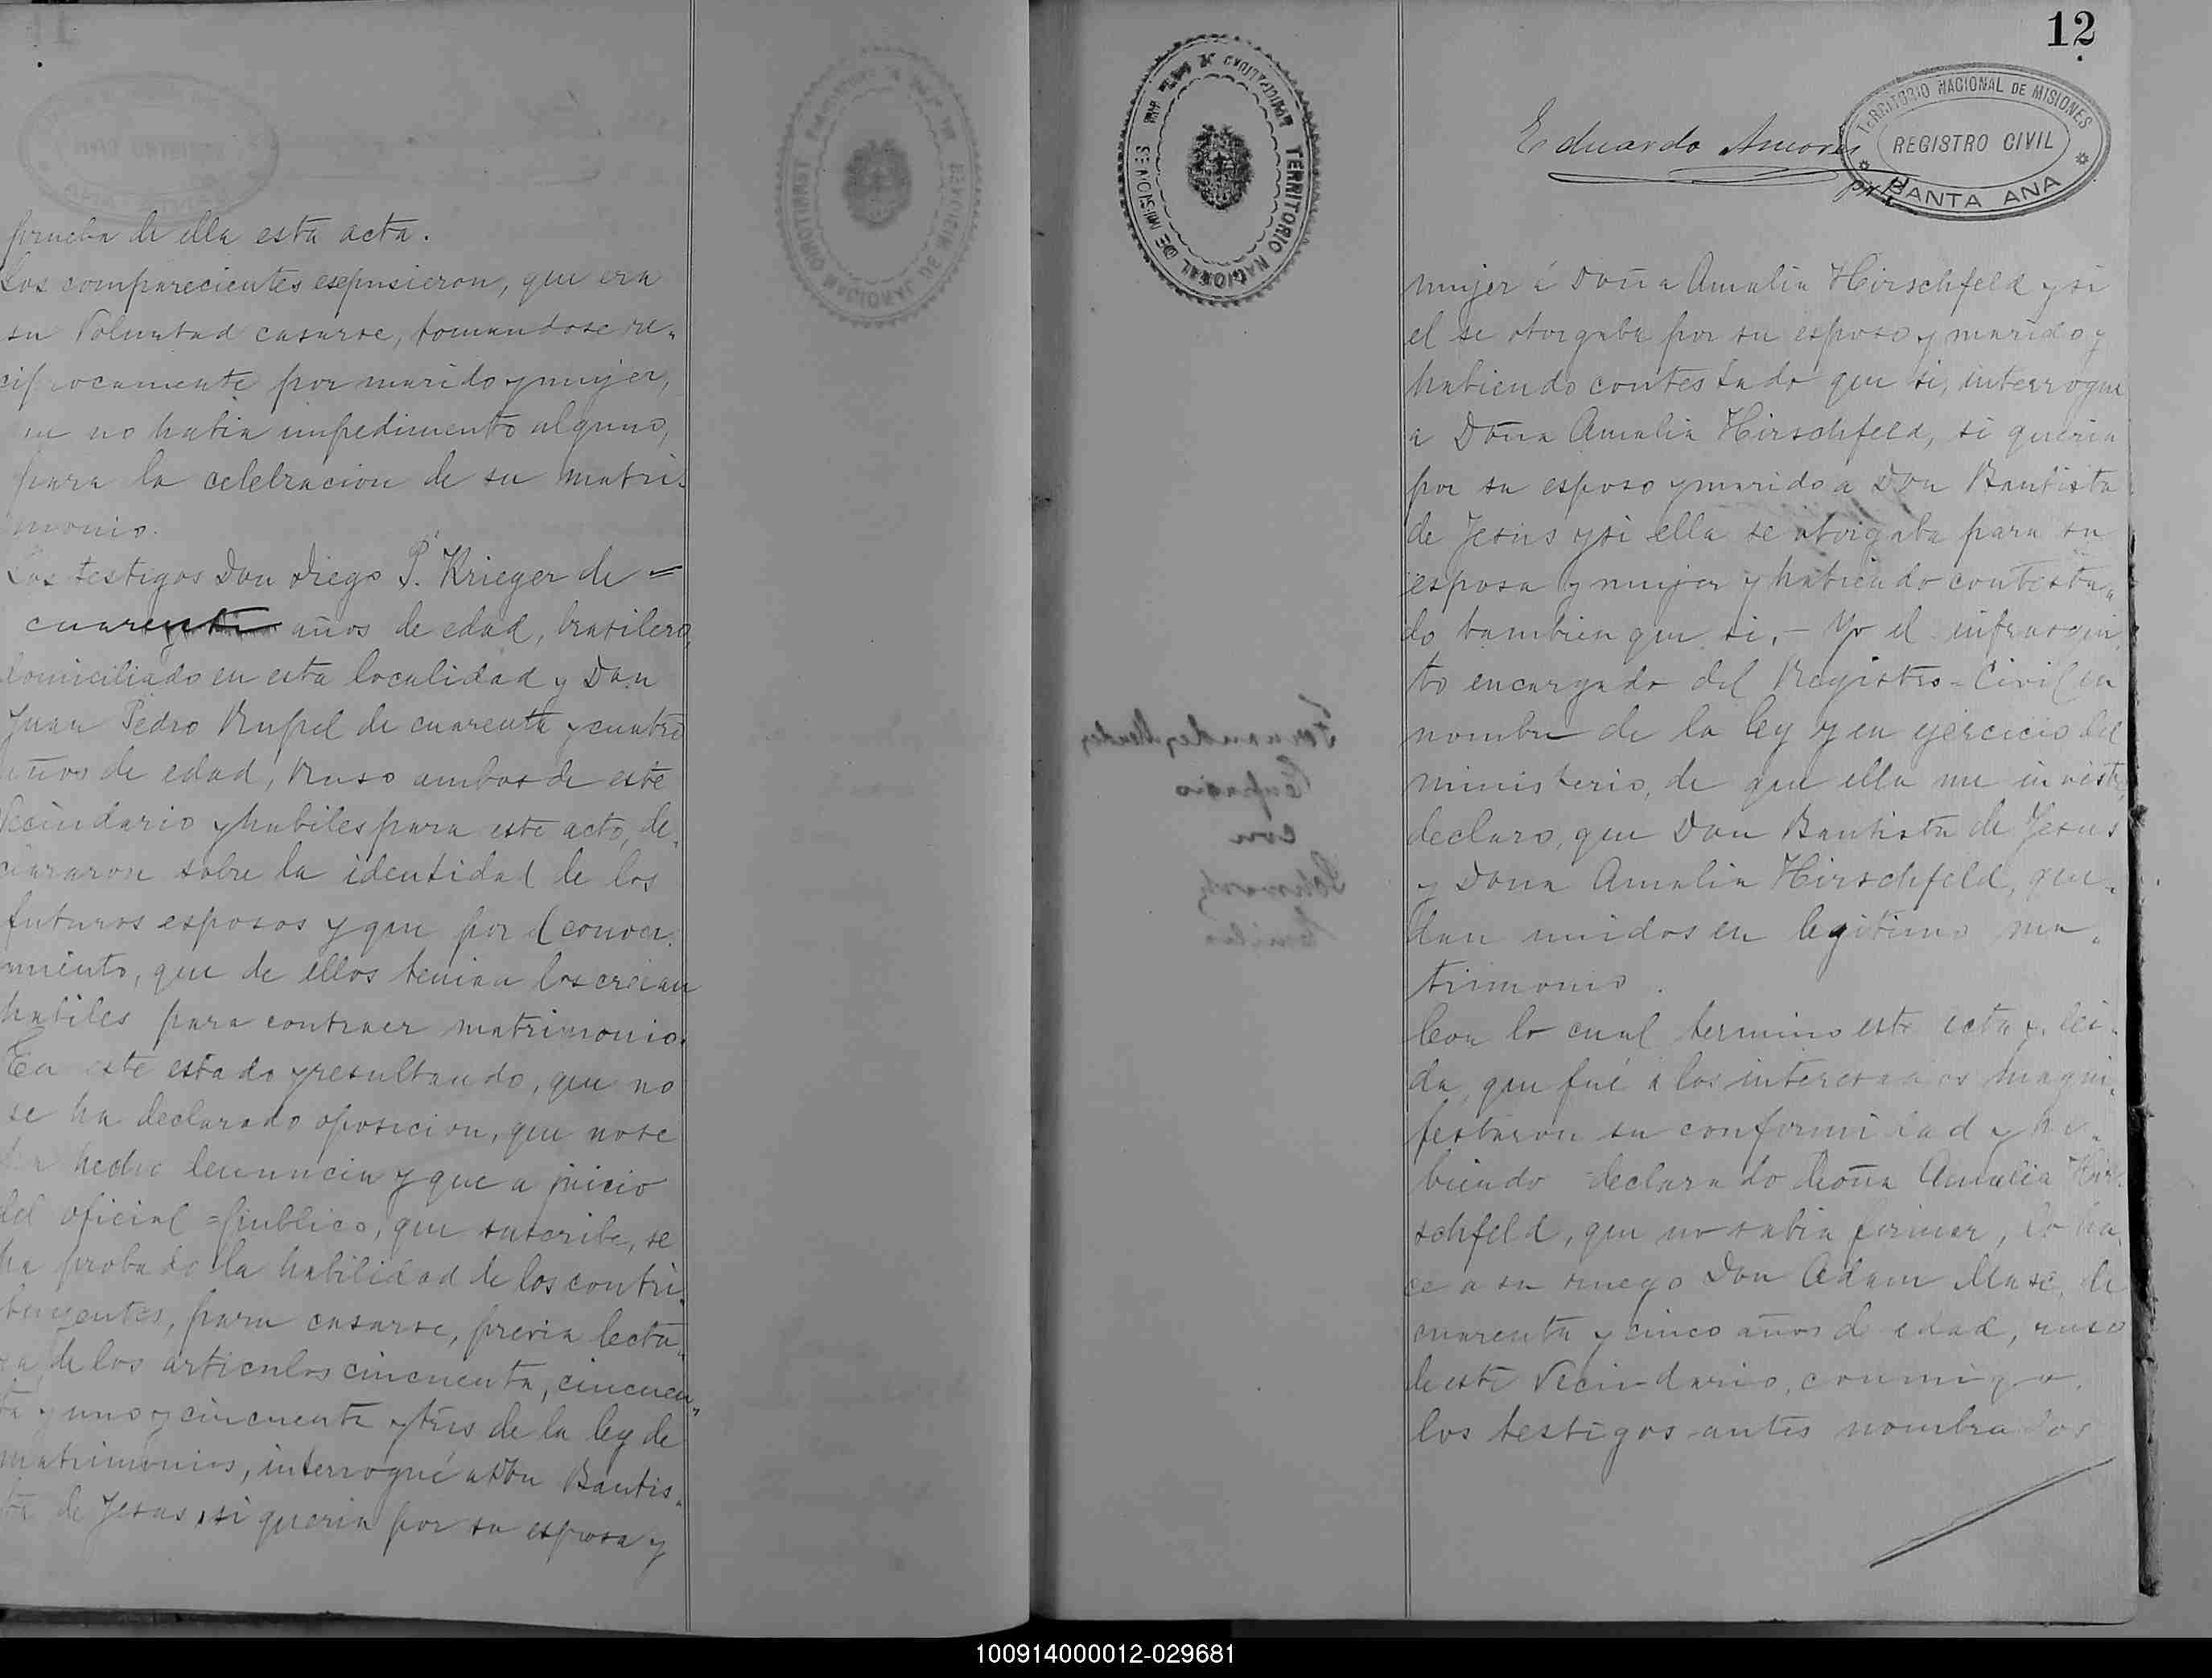 prueba de ella esta acta.
Los comparecientes esepusieron, que era
su Voluntad casarse, tomandose re-
ciprocamente por marido y mujer,
que no habia impedimento alguno,
para la celebracion de su matri-
monio.
Los testigos Don Diego P. Krieger de =
cuarenta años de edad, brasilero,
domiciliado en esta localidad y Don
Juan Pedro Rupel de cuarenta y cuatro
años de edad, Ruso ambos de este
Vecindario y habiles para este acto, de-
clararon sobre la identidad de los
futuros esposos y que por el conoci-
miento, que de ellos tenian los creian
habiles para contraer matrimonio.
En este estado y resultando, que no
se ha declarado oposicion, que no se
ha hecho denuncia y que a juicio
del oficial = publico, que suscribe, se
ha probado la habilidad de los contri-
buyentes, para casarse, previa lectu-
ra de los articulos cincuenta, cincuen-
ta y uno y cincuenta y tres de la ley de
matrimonios, interrogué a Don Bautis-
ta de Jesus, si queria por su esposa y
12
TERRITORIO NACIONAL DE MISIONES
REGISTRO CIVIL
SANTA ANA
TERRITORIO NACIONAL DE MISIONES
Eduardo
mujer á Doña Amalia Hirschfeld y si
el se otorgaba por su esposo y marido y
habiendo contestado que si, interrogue
a Doña Amalia Hirschfeld, si queria
por su esposo y marido a Don Bautista
de Jesús y si ella se otorgaba para su
esposa y mujer y habiendo contesta-
do tambien que si, - Yo el infrascri-
to encargado del Registro = Civil en
nombre de la ley y en ejercicio del
ministerio, de que ella me inviste,
declaro, que Don Bautista de Jesus
y Dona Amalia Hirschfeld, que-
dan unidos en legitimo ma-
trimonio.
Con lo cual termino este acta y lei-
da, que fué a los interesados
festaron su conformidad y ha-
biendo declarado Doña Amalia Hir-
schfeld, que no sabia firmar, lo ha-
ce a su ruego Don Adam de
cuarenta y cinco años de edad, ruso
de este Vecindario, conmigo y
los testigos antes nombrados
100914000012-029681